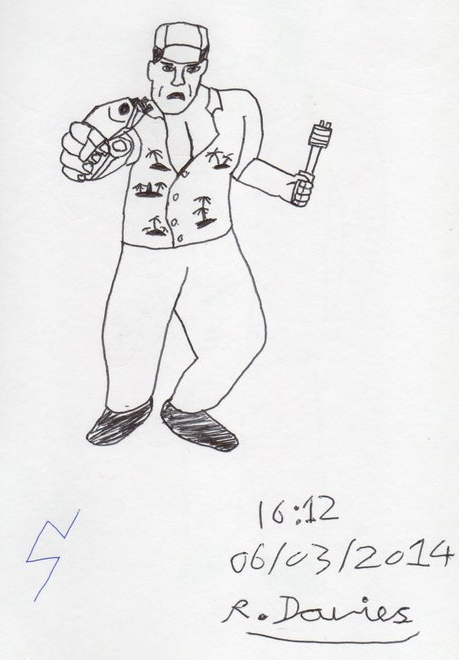 16:12
06/03/2014
R. Davies